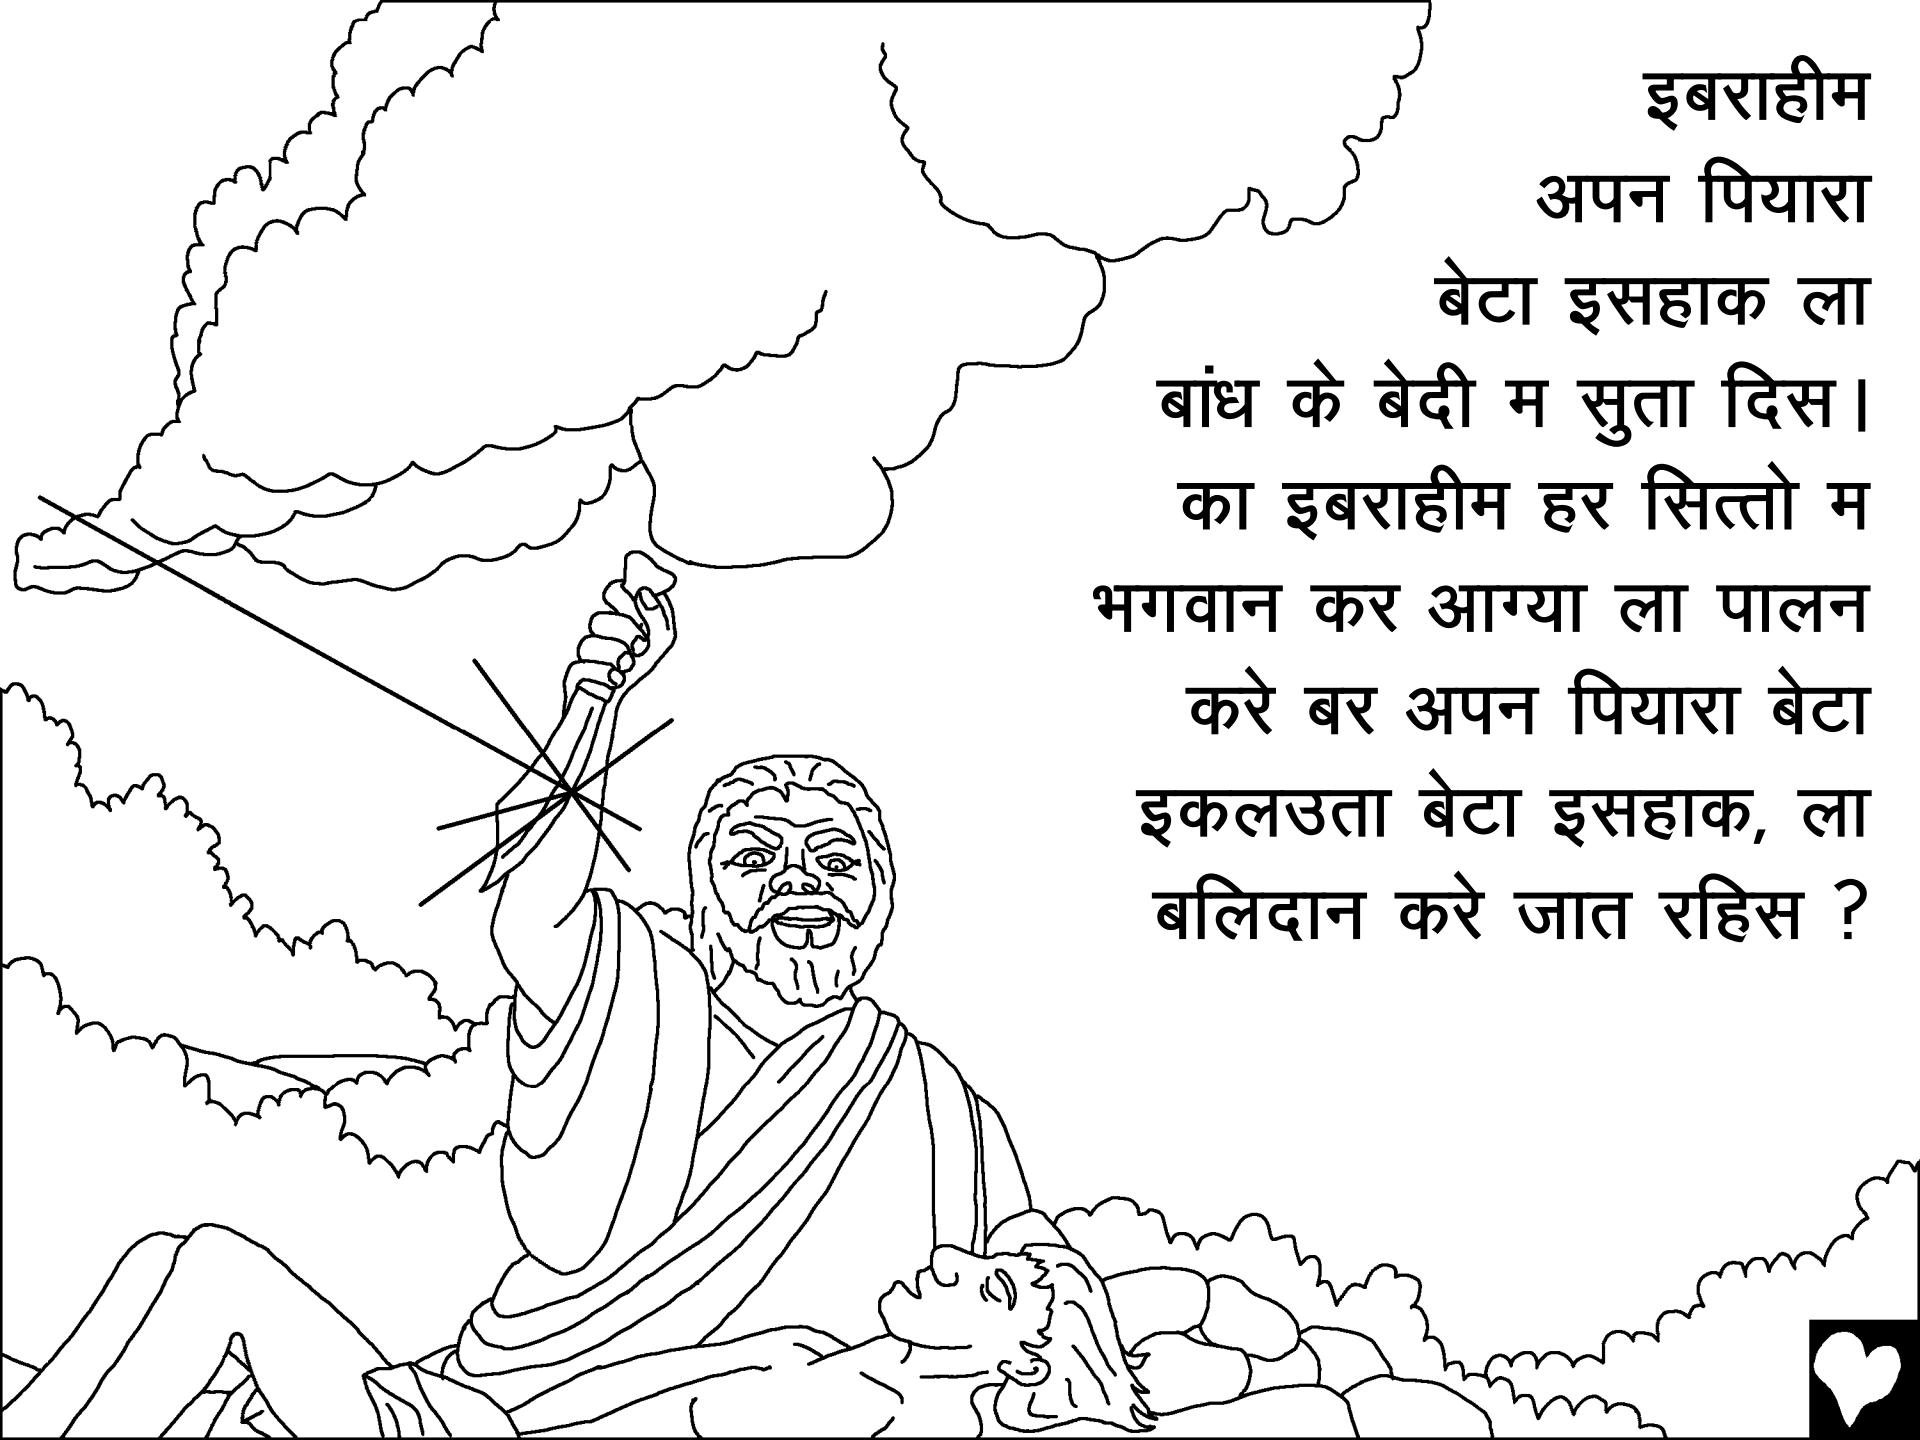 इबराहीम
अपन पियारा
बेटा इसहाक ला
बांध के बेदी म सुता दिस।
का इबराहीम हर सित्तो म
भगवान कर आग्या ला पालन
करे बर अपन पियारा बेटा
इकलउता बेटा इसहाक, ला
बलिदान करे जात रहिस ?